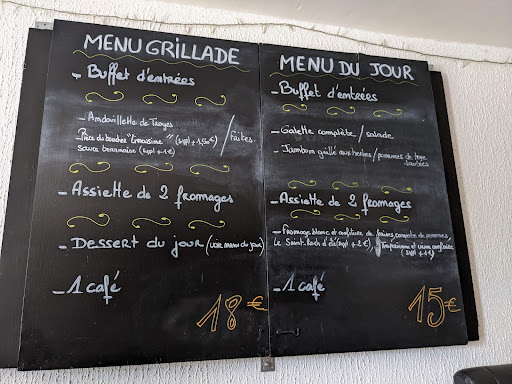 MENU GRILLADE
- Buffet d'entrées
- Andouillette de Troyes
- Pièce du boucher "Limousine" (suppl + 1,50€) / frites
sauce béarnaise (suppl + 1€)
- Assiette de 2 fromages
- Dessert du jour (voir menu du jour)
- 1 café
18€
MENU DU JOUR
- Buffet d'entrées
- Galette complète / salade
- Jambon grillé aux herbes / pommes de terre
sautées
- Assiette de 2 fromages
- Fromage blanc et confiture de fraises, compote de pommes,
Le Saint-Roch d'été (suppl + 2€), et crème
(suppl + 1€)
- 1 café
15€